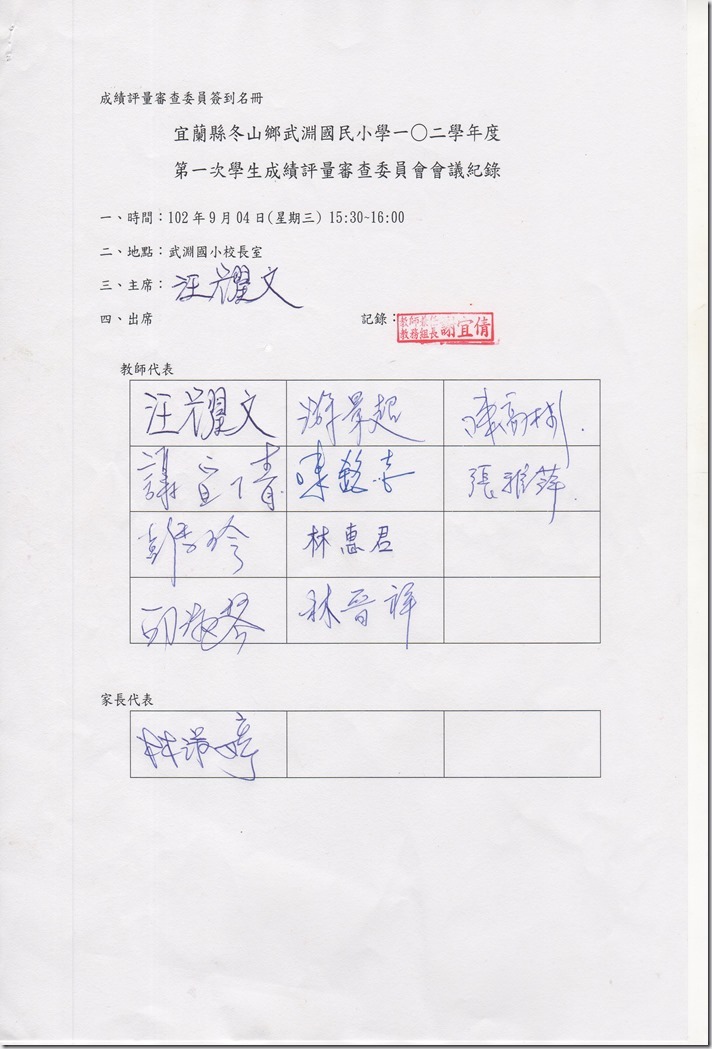 成績評量審查委員簽到名冊
宜蘭縣冬山鄉武淵國民小學一〇二學年度
第一次學生成績評量審查委員會會議紀錄
一、時間：102年9月04日(星期三) 15:30~16:00
二、地點：武淵國小校長室
三、主席：汪耀文
四、出席 記錄：教師兼 教務組長 謝宜倩
教師代表
汪耀文 游景超
謝宜倩 張雅萍
林惠君
林晉祥
家長代表